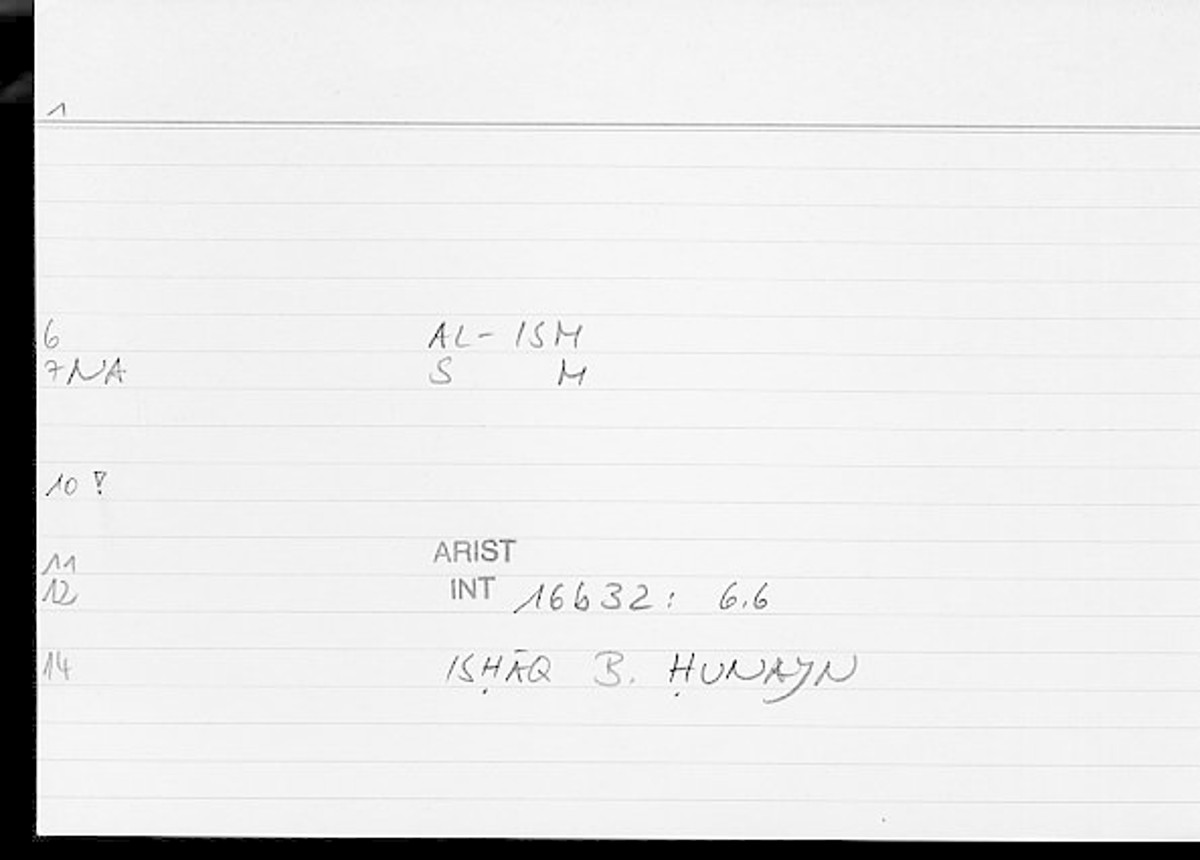 1
6 AL-ISM
7 NA S M
10 !
11 ARIST
12 INT 16b32: 6.6
14 ISḤĀQ B. ḤUNAYN